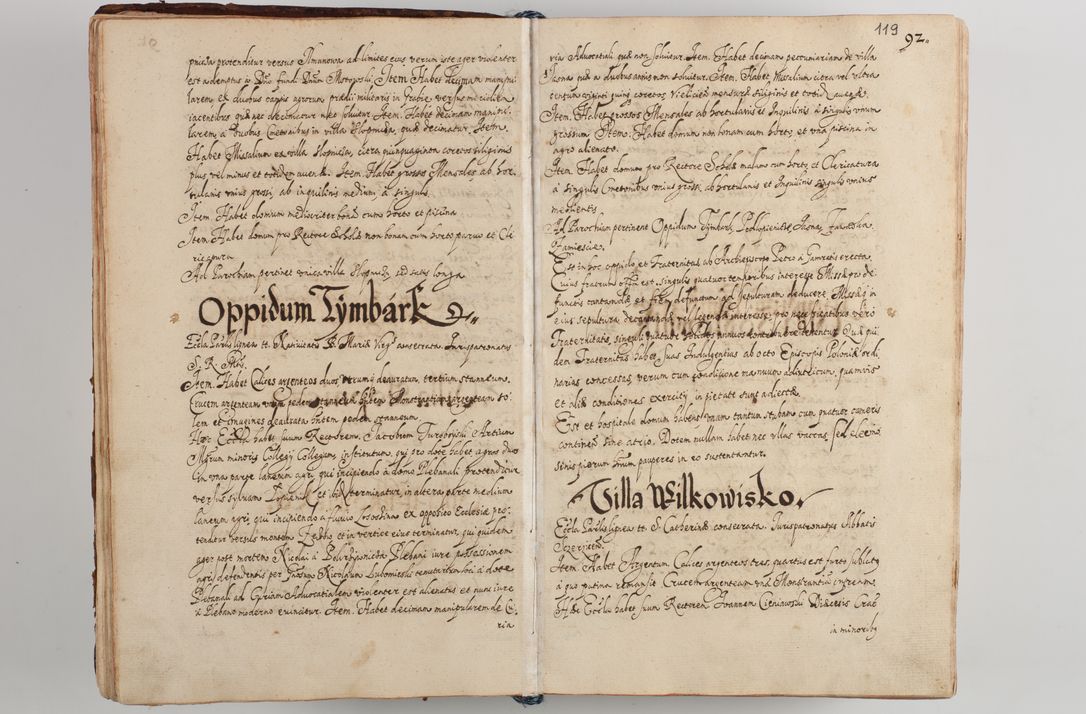 protenditur versus Limanowa ad limites eius verum iste ager violenter
est ademptus p Dnũ fundi Dnũm Item Habet decimam manipu
larem ex duobus campis agrorum prædii militaris in versus meridiem
iacentibus quæ nec decimatur neq soluitur Item. Habet decimam manipu:
larem a duobus Cmetonibus in villa Słopnicza, quæ decimatur, Item.
Habet Missalium ex villa Słopnicza, citra nunquaginta coretos siliginis
plus vel minus et totidem auenæ. Item. Habet grossos Mensales ab hor
tulanis vnius grossi, ab inquilinis medium, a singulis.
Item. Habet domum mediocriter bonã cum horto et piscina
Item. Habet domum pro Rectore Scholæ non bonam cum horto paruo et Cle
ricatura.
Ad Parochiam pertinet vnica villa Słopnicz, sed satis longa
Oppidum Tymbárk
Eccla Parlis lignea tt. Natiuitatis B. Mariæ Virg. consecrata. Iurispatronatus
S. R. Mtis.
Item. Habet Calices argenteos duos vtrumq deauratum, tertium stanneum.
Crucem argenteam vnam pedem stanneum Item Monstrantiam argenteam so
lem et imagines deaurata Item pedem stanneum
Hæc Eccla habet suum Rectorem, Iacobum Turobojski Artium
Mgrum minoris Collegij Collegam institutum, qui pro dote habet agros duos
In vna parte laneum agri, qui incipiendo a domo Plebanali protenditur
versus syluam Łopien et ibi terminatur, in altera parte medium
laneum agri, qui incipiendo a fluuio Łososina ex opposito Ecclesiæ pro:
tenditur versus montem et in vertice eius terminatur, qui quidem
ager post mortem Nicolai a Plebani iure possessionem
agri defendentis per Gnosum Nicolaum Lubomieski tenutarium loci a dote
Plebanali ad Cyriam Aduocatialem violenter est alienatus et nunc iure
a Plebano moderno euincitur. Item. Habet decimam manipularem de Cu
ria
119
92.
ria Aduocatiali quæ non soluitur. Item. Habet decimam pecuniariam de villa
Jasna quæ a duobus annis non soluitur. Item. Habet Missalium citra vel vltra
centum viginti quinq coretos siliginis et totidem auenæ.
Item. Habet grossos Mensales ab hortulanis et Inquilinis a singulis vnum
grossum. Item. Habet domum non bonam cum horto, et vna piscina in
agro alienato.
Item. Habet domum pro Rectore Scholæ malam cum horto, et Clericatura
a singulis Cmetonibus vnius grossi, ab hortulanis et Inquilinis singulis vnius
medientis
Ad Parochiam pertinent Oppidum Tymbark, Podłopienie, Jasna,
Zamiescie.
Est in hoc oppido et Fraternitas ab Archiepiscopo Petro a Gamratis erecta
Cuius fratrum offm est, singulis quatuor temporibus interesse Missæ pro de:
functis cantandæ et frem defunctum ad sepulturam deducere. Missæ q in
eius sepultura decantandæ vel legendæ interesse: pro necessitatibus vero
Fraternitatis, singuli quatuor binos contribuere tenentur. Quæ qui
dem Fraternitas habet suas Indulgentias ab octo Episcopis Poloniæ ordi
narias concessas, verum cum conditione manuum adiutricum, quamuis
et aliæ conditiones exercitij in pietate sunt adiectæ.
Est et hospitale domum habens vnam tantum stubam cum quatuor cameris
continens sine atrio. Dotem nullam habet nec vllas vaccas sed eleemo
sinis piorum hnum pauperes in eo sustentantur.
Villa Wilkowisko.
Eccla Parlis lignea tt. S. Catherinæ consecrata. Iurispatronatus Abbatis
Item. Habet Argentum Calices argenteos tres, quartus est furto sublatus
a quo patina remansit Crucem argenteam vnã. Monstrantiã
Hæc Eccla habet suum Rectorem Ioannem Cieniawski Diæcesis Crac
in minoribus